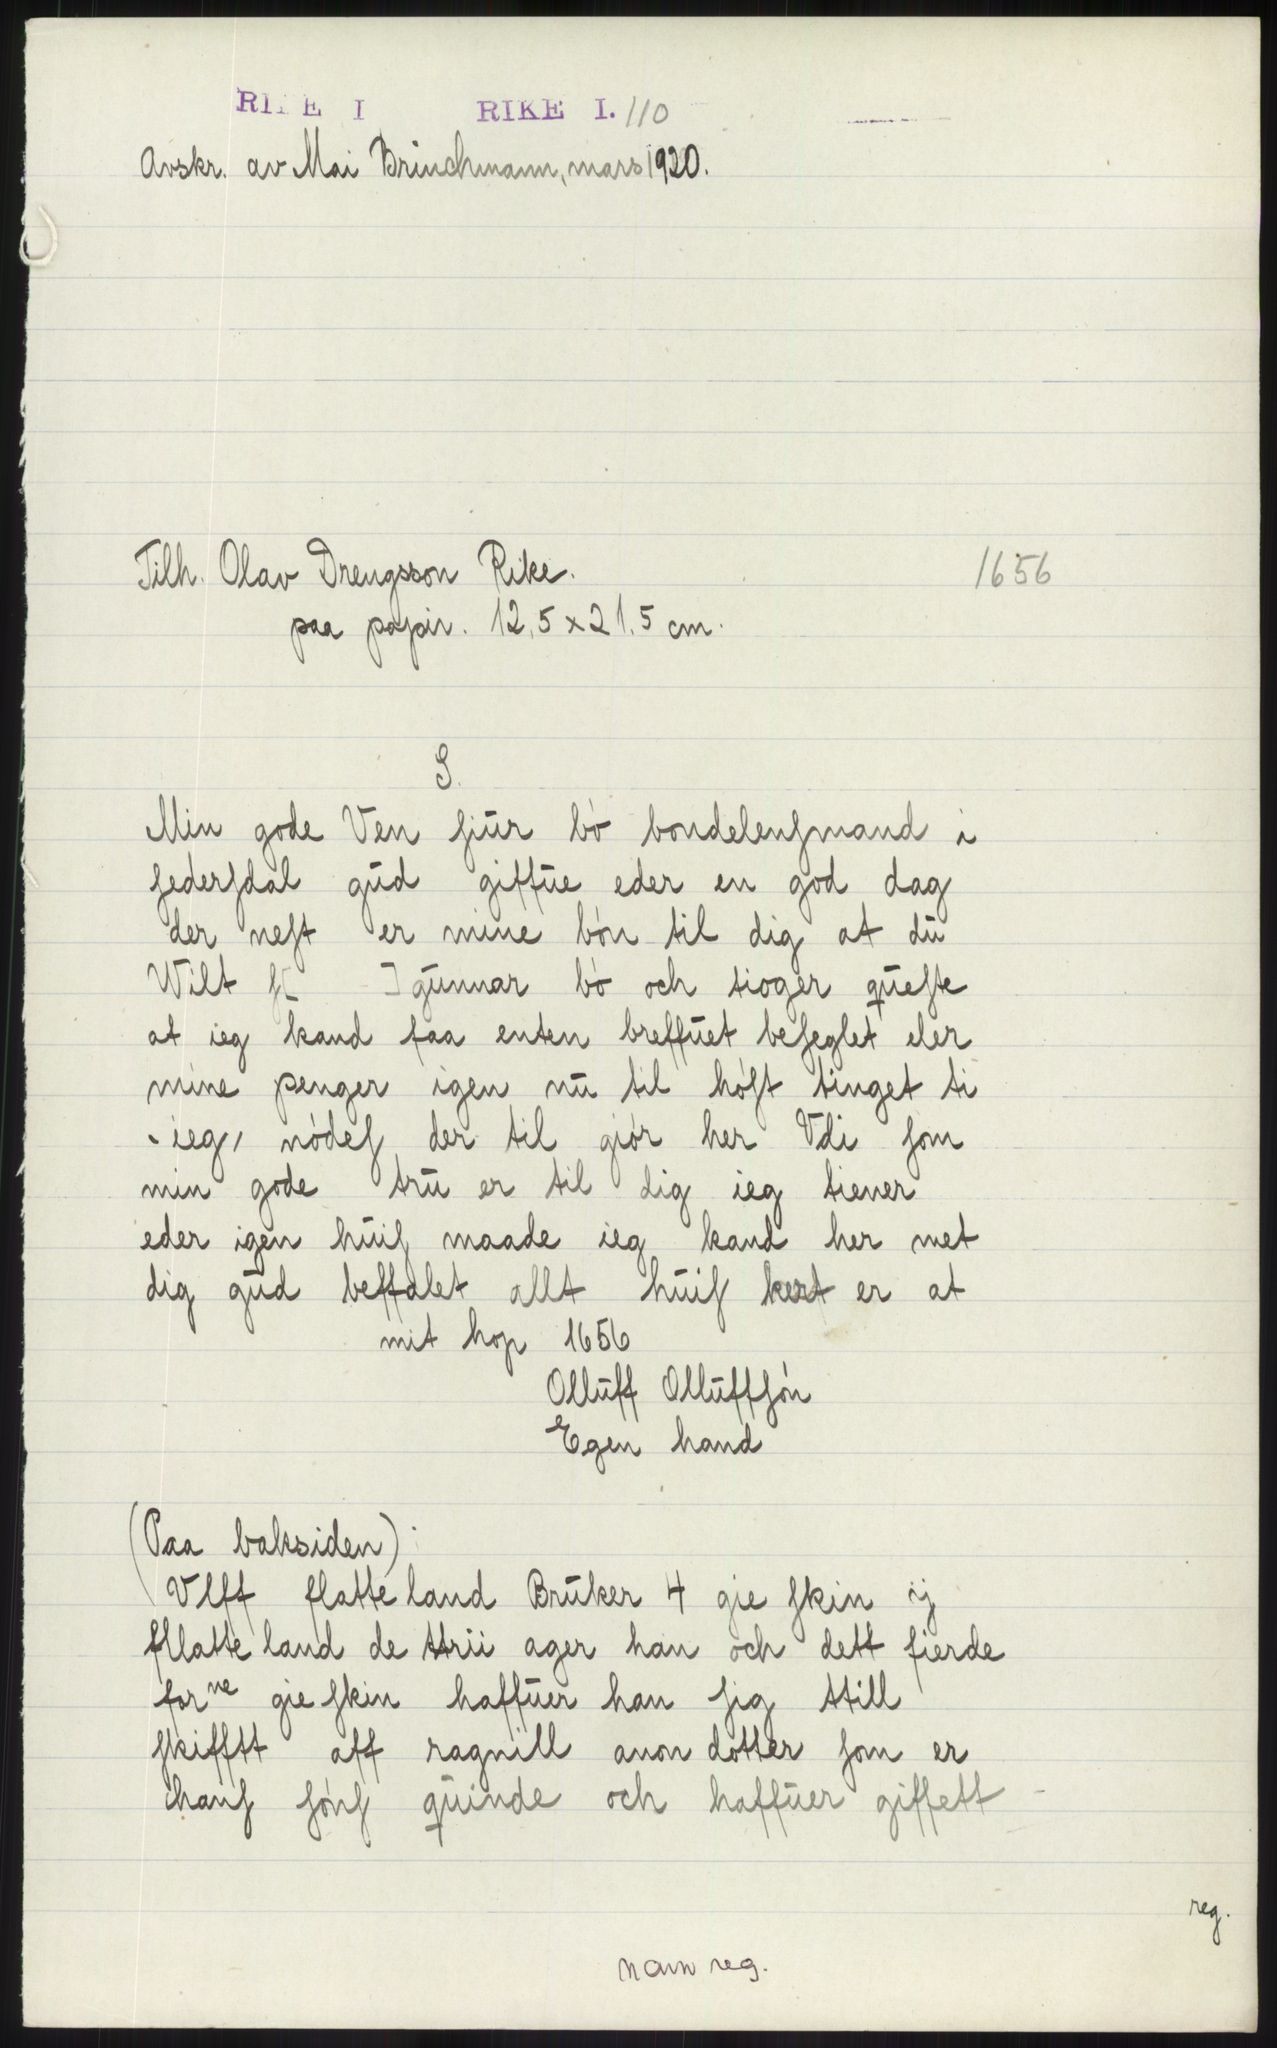 RIKE I RIKE I. 110
Avskr. av Mai Brinchmann, mars 1920.
Tilh. Olav Drengsson Rike. 1656
paa papir. 12,5 x 21,5 cm.
S.
Min gode Ven siūr bó bondelensmand i
sedersdal gūd giffūe eder en god dag
der nest er mine bón til dig at dū
Wilt s[ ] gūnnar bó och tioger qūeste
at ieg kand faa enten breffūet beseglet eler
mine penger igen nū til hóst tinget ti
ieg, nódes der til giór her Vdi som
min gode trū er til dig ieg tiener
eder igen hūis maade ieg kand her met
dig gūd beffalet allt hūis kert er at
mit hop 1656
Ollūff Ollūffsón
Egen hand
(Paa baksiden):
Vlff flatte land Brūker 4 gie skin ij
fllatte land de ttrii ager han och dett fierde
forne gie skin haffūer han sig ttill
skifftt aff ragnill anon dotter som er
hans sóns qūinde och haffūer giffett -
reg.
navn reg.